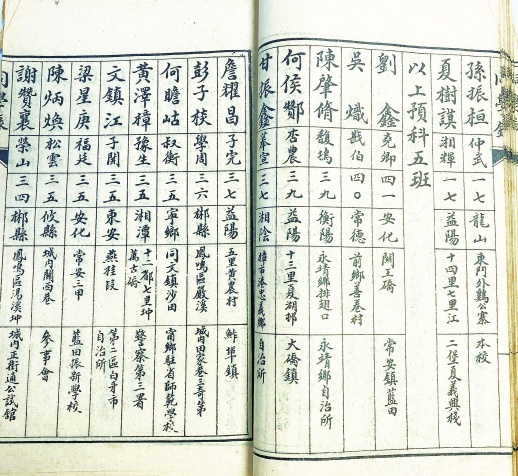 孫振桓 仲武 一七 龍山 東門外鷄公寨 本校
夏樹謨 湘輝 一七 益陽 十四里七里江 二堡夏義興棧
以上預科五班
劉鑫 克卿 四一 安化 關王橋 常安鎮藍田
吳熾 戡伯 四〇 常德 前鄉善卷村
陳肇脩 馥塢 三九 衡陽 永靖鄉排廻口 永靖鄉自治所
何侯酇 杏農 三九 益陽 十三里夏湖邨 大橋鎮
甘振鑫 三七 湘陰 自治所
詹耀昌 子完 三七 益陽 五里黃農村 鮓埠鎮
彭子校 學周 三六 郴縣 鳳鳴區嚴溪 城內田家巷三奇第
何瞻岵 叔衡 三五 寧鄉 同文鎮沙田 甯鄉駐省師範學校
黃澤樟 豫生 三五 湘潭 十二都七里坤萬古橋 警察第三署
文鎮江 子開 三五 東安 燕桂段 第二區白牙市自治所
梁星庚 福廷 三五 安化 常安三甲 藍田振新學校
陳炳煥 松雲 三五 攸縣 城內關西巷 參事會
謝贊襄 榮山 三四 郴縣 鳳鳴區湯溪坤 城內正街通公試館
同學錄